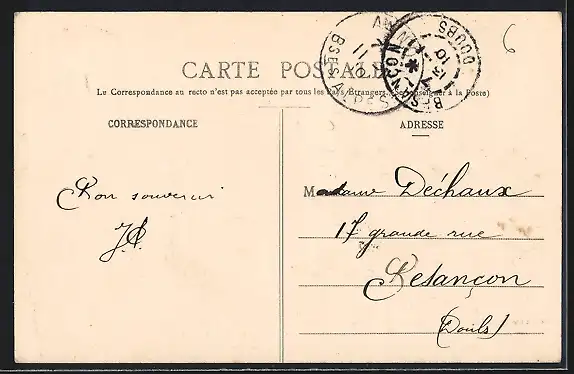 6
CARTE POSTALE
La Correspondance au recto n'est pas acceptée par tous les Pays Étrangers. (Se renseigner à la Poste)
CORRESPONDANCE
ADRESSE
Bon souvenir
J.P.
Madame Déchaux
17 grande rue
Besançon
(Doubs)
BSES ALPES
DOUBS